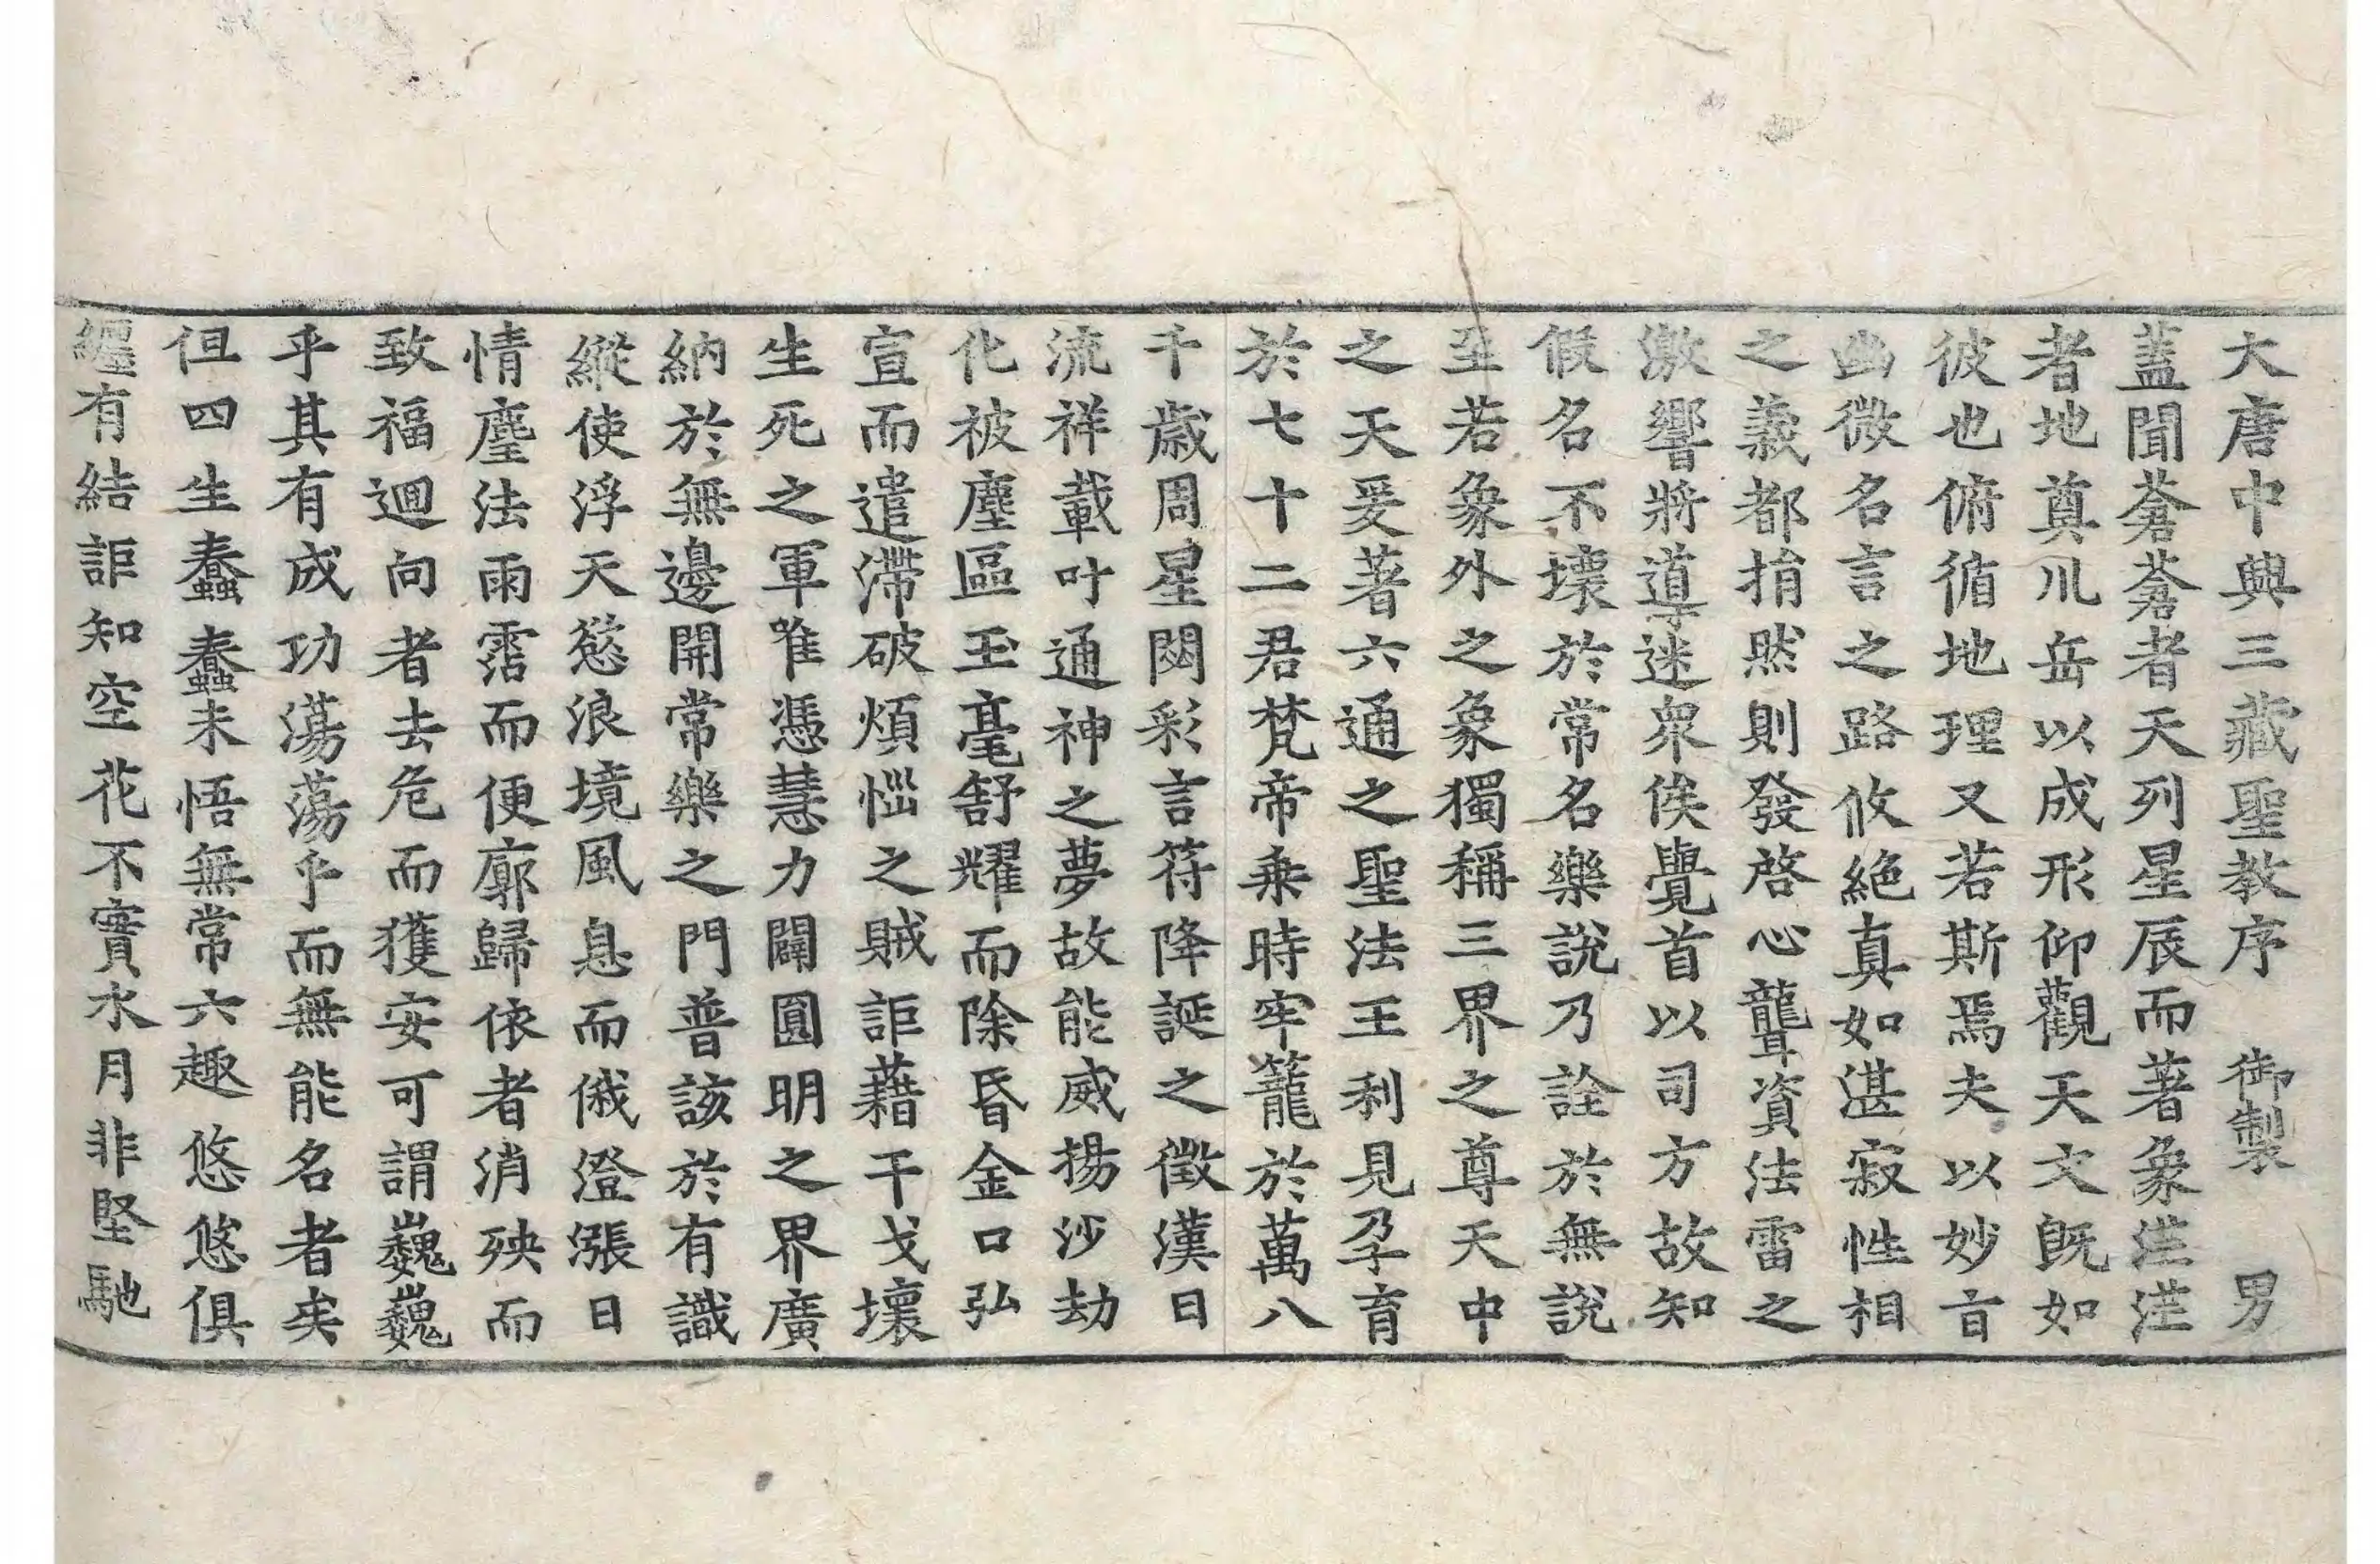 大唐中興三藏聖教序　御製　男
蓋聞蒼蒼者天列星辰而著象茫茫
者地奠川岳以成形仰觀天文既如
彼也俯循地理又若斯焉夫以妙旨
幽微名言之路攸絕真如湛寂性相
之義都捐然則發啓心聾資法雷之
激響將導迷衆俟覺首以司方故知
假名不壞於常名樂說乃詮於無說
至若象外之象獨稱三界之尊天中
之天爰著六通之聖法王利見孕育
於七十二君梵帝乗時牢籠於萬八
千歲周星閟彩言符降誕之徵漢日
流祥載叶通神之夢故能威揚沙劫
化被塵區玉毫舒耀而除昏金口弘
宣而遣滯破煩惱之賊詎藉干戈壞
生死之軍唯憑慧力闢圓明之界廣
納於無邊開常樂之門普該於有識
縱使浮天慾浪境風息而俄澄漲日
情塵法雨霑而便廓歸依者消殃而
致福迴向者去危而獲安可謂巍巍
乎其有成功蕩蕩乎而無能名者矣
但四生蠢蠢未悟無常六趣悠悠俱
纏有結詎知空花不實水月非堅馳